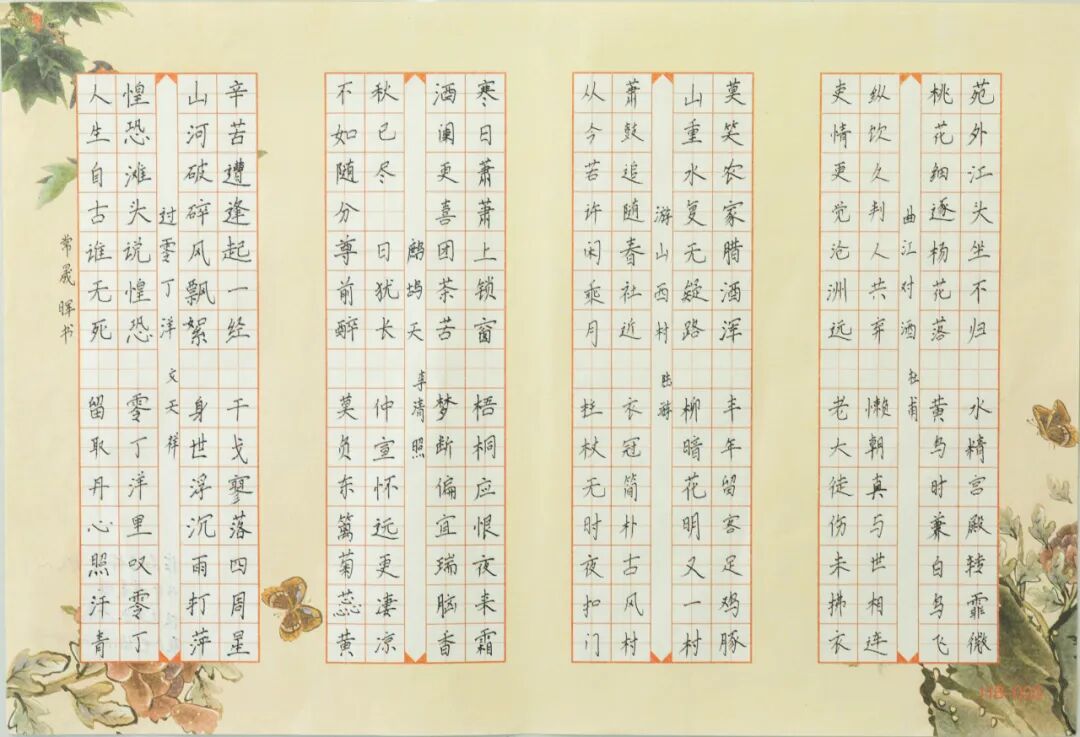 苑外江头坐不归 水精宫殿转霏微
桃花细逐杨花落 黄鸟时兼白鸟飞
曲江对酒 杜甫
纵饮久判人共弃 懒朝真与世相连
吏情更觉沧洲远 老大徒伤未拂衣
莫笑农家腊酒浑 丰年留客足鸡豚
山重水复无疑路 柳暗花明又一村
游山西村 陆游
萧鼓追随春社近 衣冠简朴古风村
从今若许闲乘月 拄杖无时夜扣门
寒日萧萧上锁窗 梧桐应恨夜来霜
酒阑更喜团茶苦 梦断偏宜瑞脑香
鹧鸪天 李清照
秋已尽 日犹长 仲宣怀远更凄凉
不如随分尊前醉 莫负东篱菊蕊黄
辛苦遭逢起一经 干戈寥落四周星
山河破碎风飘絮 身世浮沉雨打萍
过零丁洋 文天祥
惶恐滩头说惶恐 零丁洋里叹零丁
人生自古谁无死 留取丹心照汗青
常晟晖书